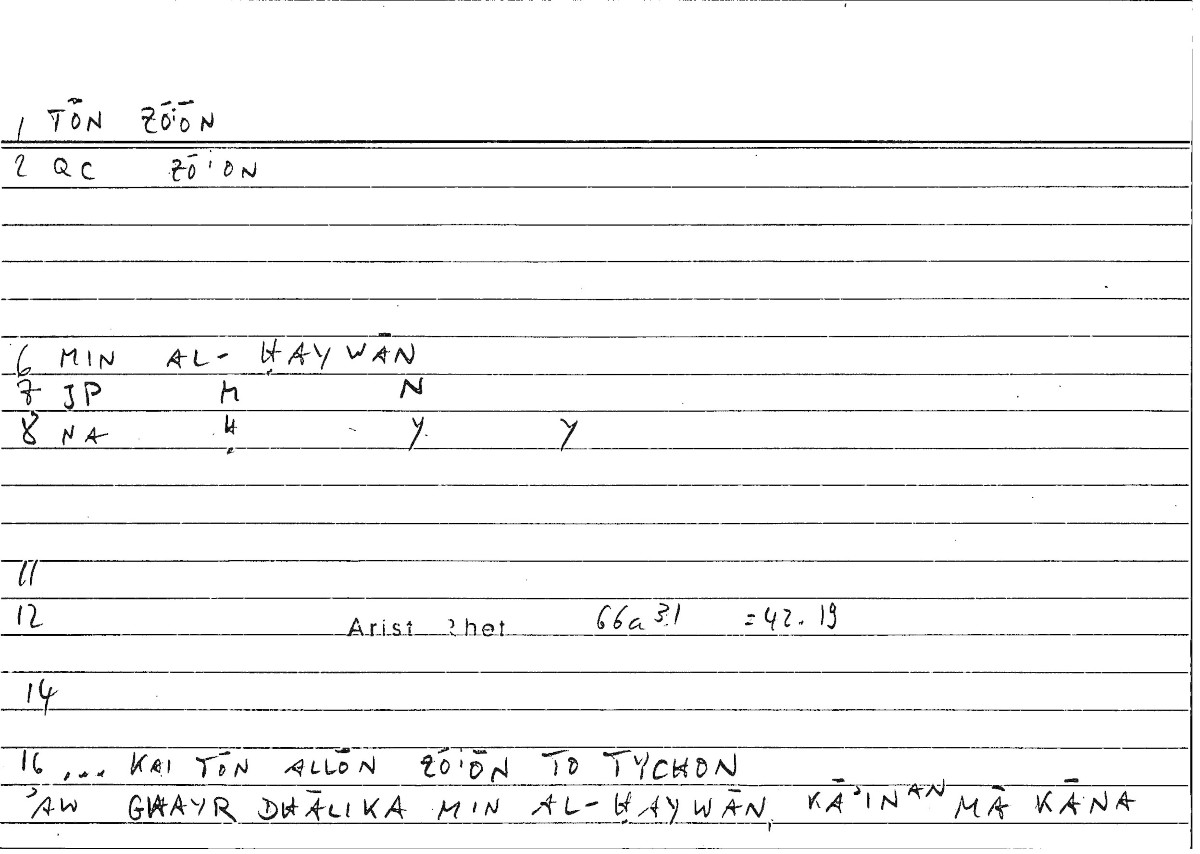 1 TŌN ZŌ'ŌN
2 QC ZŌ'ON
6 MIN AL-ḤAYWĀN
7 JP H N
8 NA Ḥ Y Y
11
12 Arist Rhet 66a31 =42.19
14
16 ... KAI TŌN ALLŌN ZŌ'ŌN TO TYCHON
'AW GHAYR DHĀLIKA MIN AL-ḤAYWĀN, KĀ'INAN MĀ KĀNA